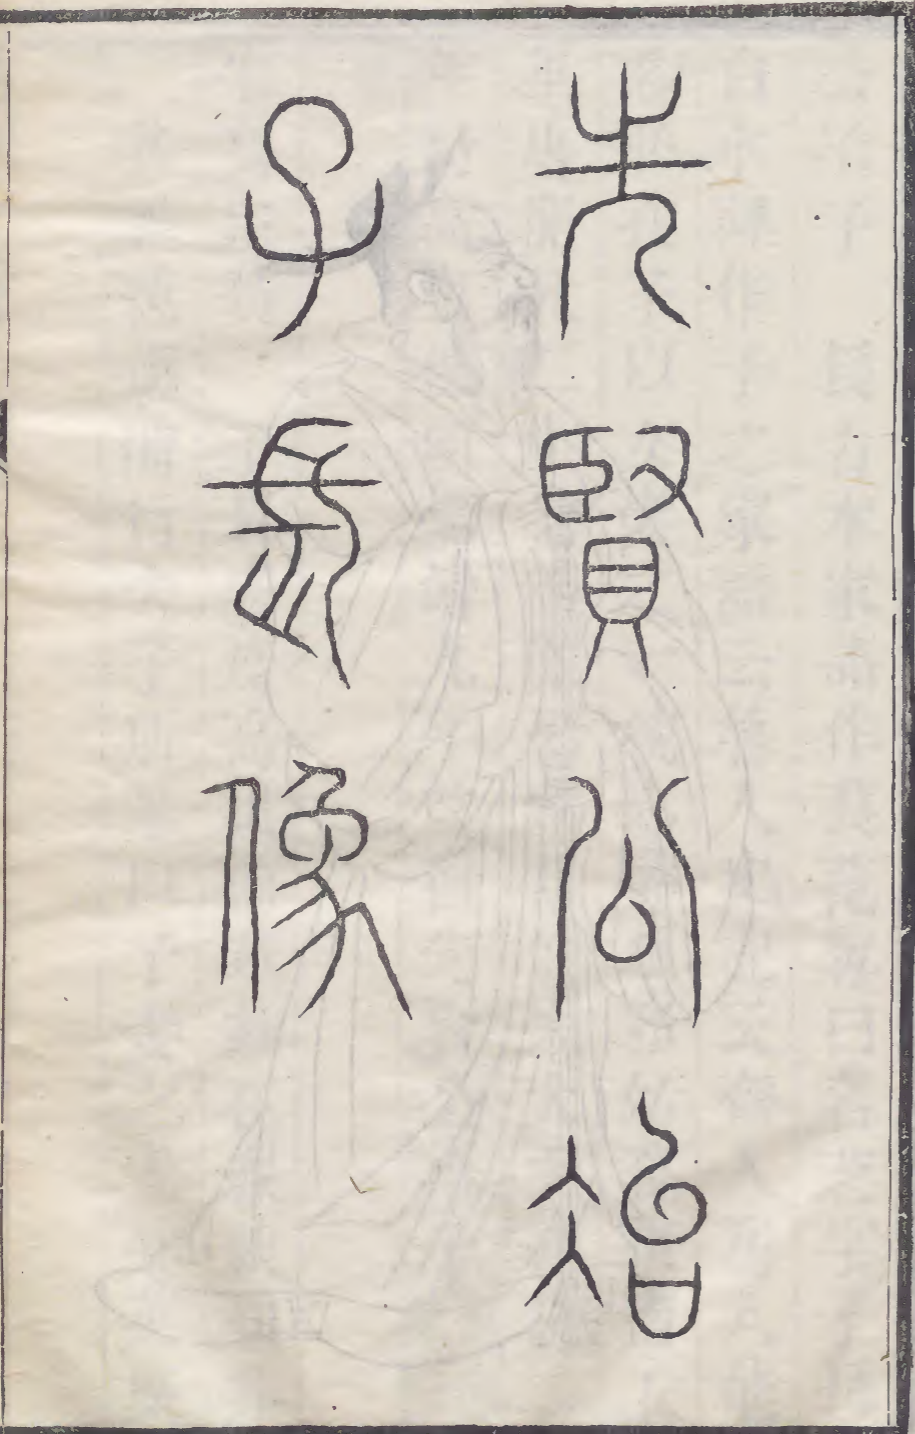 先賢公冶
子長像